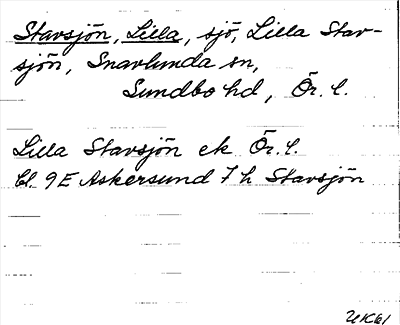 Stavsjön, Lilla, sjö, Lilla Stav-
sjön, Snavlunda sn,
Sundbo hd, Ör. l.
Lilla Stavsjön ek Ör. l.
Bl. 9E Askersund 7 h Stavsjön
UK61